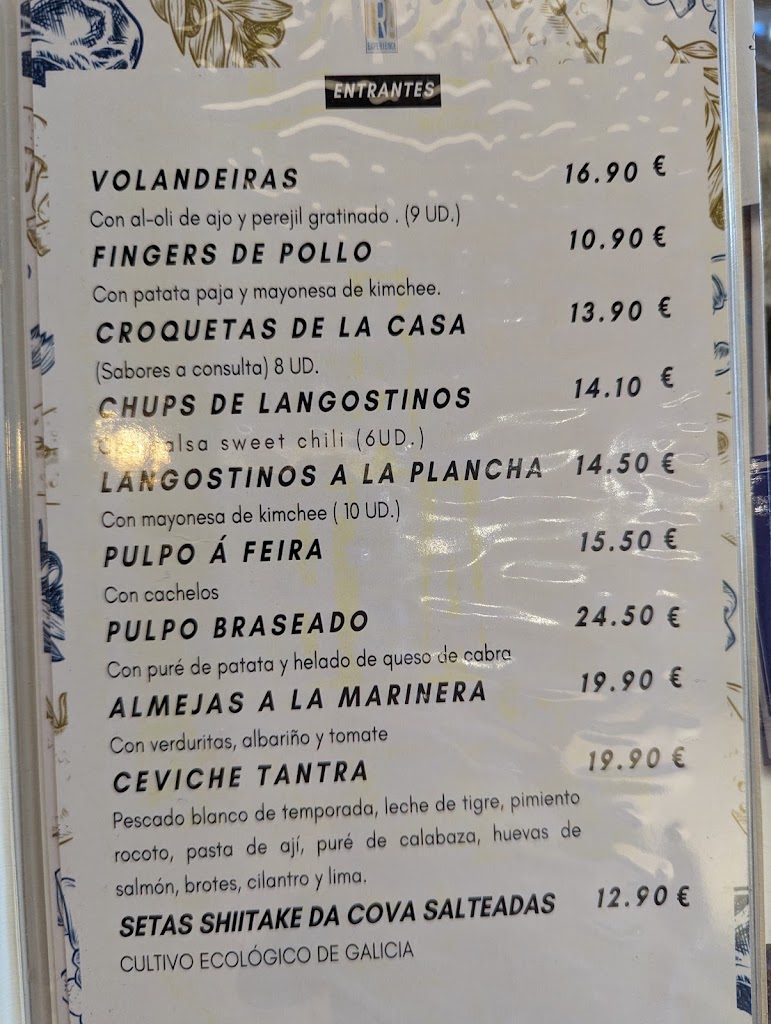 R
EXPERIENCE
ENTRANTES
VOLANDEIRAS 16.90 €
Con al-oli de ajo y perejil gratinado . (9 UD.)
FINGERS DE POLLO 10.90 €
Con patata paja y mayonesa de kimchee.
CROQUETAS DE LA CASA 13.90 €
(Sabores a consulta) 8 UD.
CHUPS DE LANGOSTINOS 14.10 €
sweet chili (6UD.)
LANGOSTINOS A LA PLANCHA 14.50 €
Con mayonesa de kimchee ( 10 UD.)
PULPO Á FEIRA 15.50 €
Con cachelos
PULPO BRASEADO 24.50 €
Con puré de patata y helado de queso de cabra
ALMEJAS A LA MARINERA 19.90 €
Con verduritas, albariño y tomate
CEVICHE TANTRA 19.90 €
Pescado blanco de temporada, leche de tigre, pimiento
rocoto, pasta de ají, puré de calabaza, huevas de
salmón, brotes, cilantro y lima.
SETAS SHIITAKE DA COVA SALTEADAS 12.90 €
CULTIVO ECOLÓGICO DE GALICIA